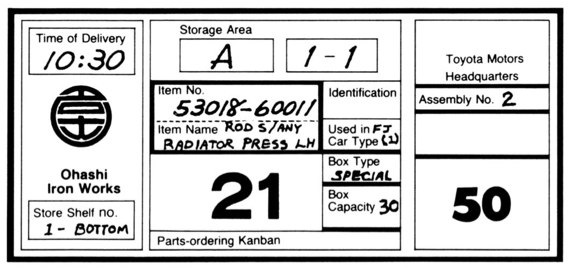 Time of Delivery
10:30
Ohashi
Iron Works
Store Shelf no.
1 - BOTTOM
Storage Area
A
1 - 1
Item No.
53018-60011
Item Name ROD S/ANY
RADIATOR PRESS LH
21
Parts-ordering Kanban
Identification
Used in FJ
Car Type (1)
Box Type
SPECIAL
Box
Capacity 30
Toyota Motors
Headquarters
Assembly No. 2
50